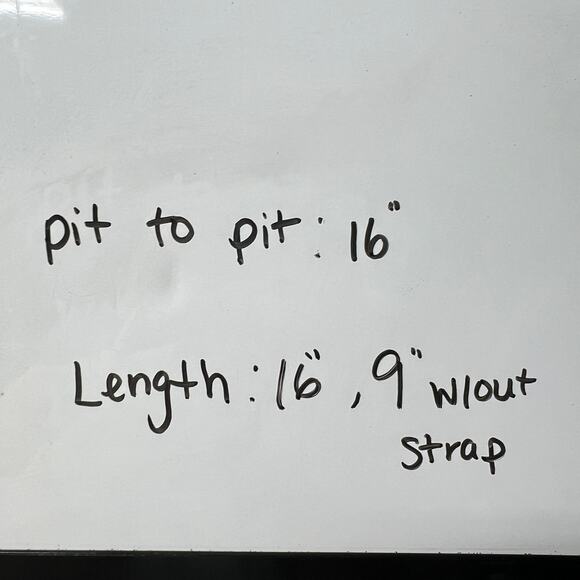 pit to pit: 16"
Length: 16", 9" w/out
strap